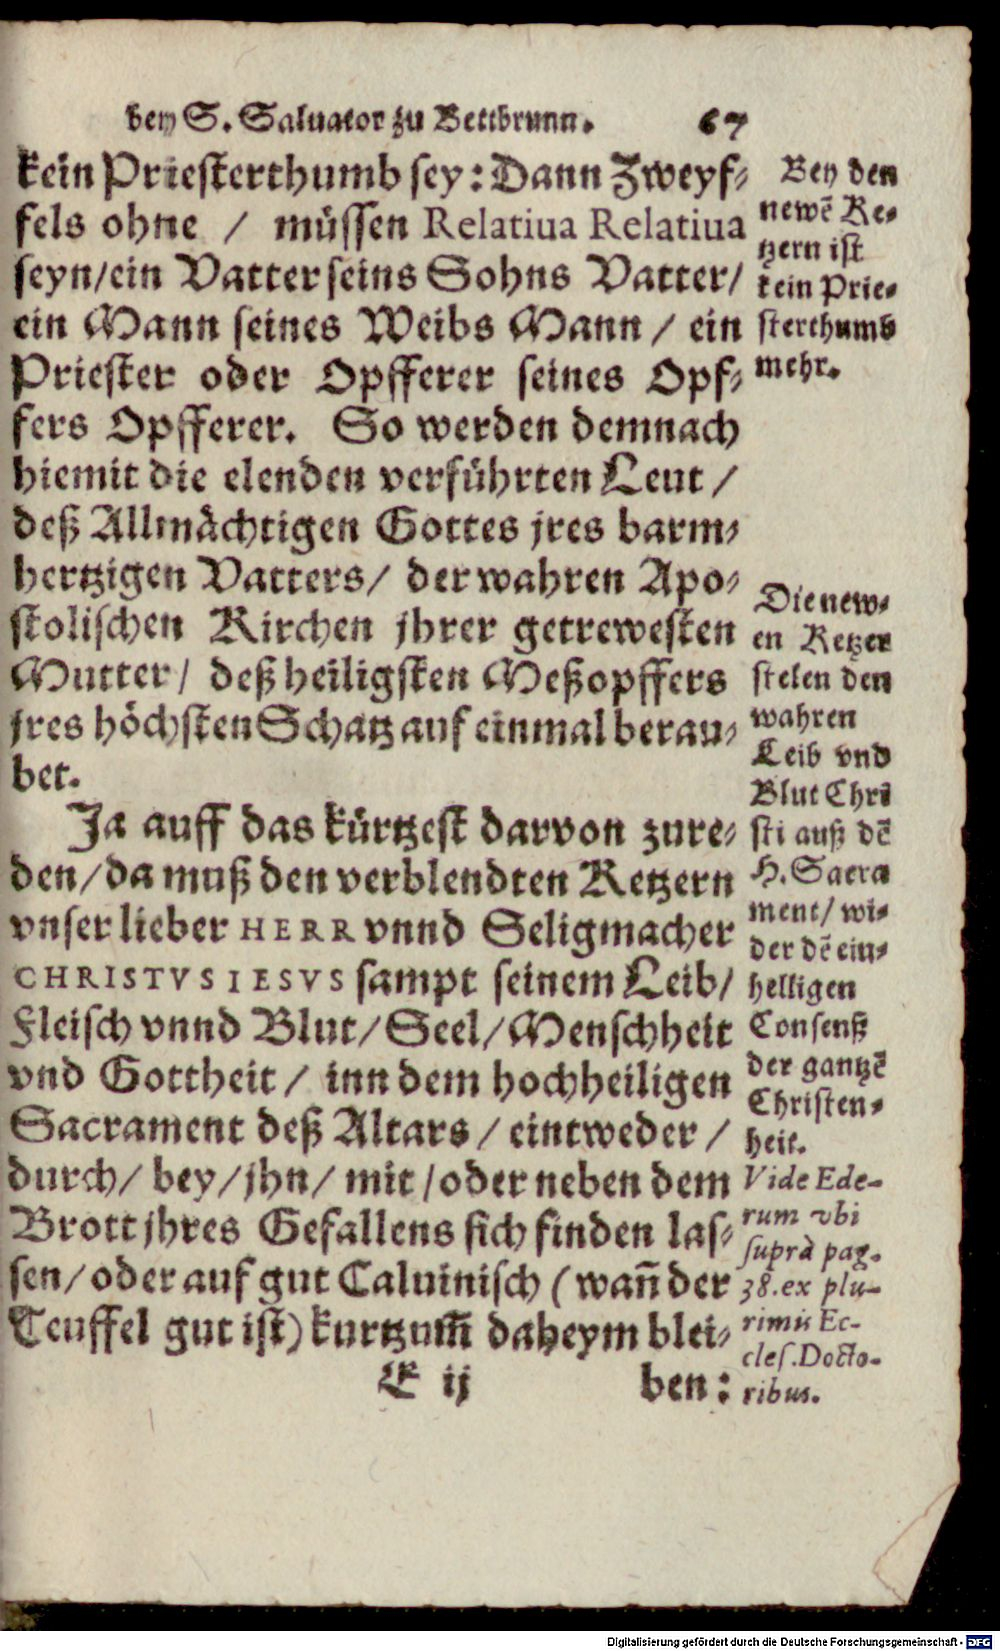 bey S. Saluator zu Bettbrunn. 67
kein Priesterthumb sey: Dann Zweyf-
fels ohne / müssen Relatiua Relatiua
seyn/ein Vatter seins Sohns Vatter/
ein Mann seines Weibs Mann / ein
Priester oder Opfferer seines Opf-
fers Opfferer. So werden demnach
hiemit die elenden verführten Leut /
deß Allmächtigen Gottes jres barm-
hertzigen Vatters/ der wahren Apo-
stolischen Kirchen jhrer getrewesten
Mutter/ deß heiligsten Meßopffers
jres höchsten Schatz auf einmal berau-
bet.
Ja auff das kürtzest darvon zure-
den/da muß den verblendten Ketzern
vnser lieber HERR vnnd Seligmacher
CHRISTVS IESVS sampt seinem Leib/
Fleisch vnnd Blut/Seel/Menschheit
vnd Gottheit / inn dem hochheiligen
Sacrament deß Altars / eintweder /
durch/ bey/jhn/ mit/oder neben dem
Brott jhres Gefallens sich finden las-
sen/oder auf gut Caluinisch (wañ der
Teuffel gut ist) kurtzum̃ daheym blei-
E ij ben:
Bey den
newẽ Ke-
tzern ist
kein Prie-
sterthumb
mehr.
Die new-
en Ketzer
stelen den
wahren
Leib vnd
Blut Chri
sti auß dẽ
H. Sacra
ment/ wi-
der dẽ ein-
helligen
Consenß
der gantzẽ
Christen-
heit.
Vide Ede-
rum vbi
suprà pag.
38. ex plu-
rimis Ec-
cles. Docto-
ribus.
Digitalisierung gefördert durch die Deutsche Forschungsgemeinschaft - DFG